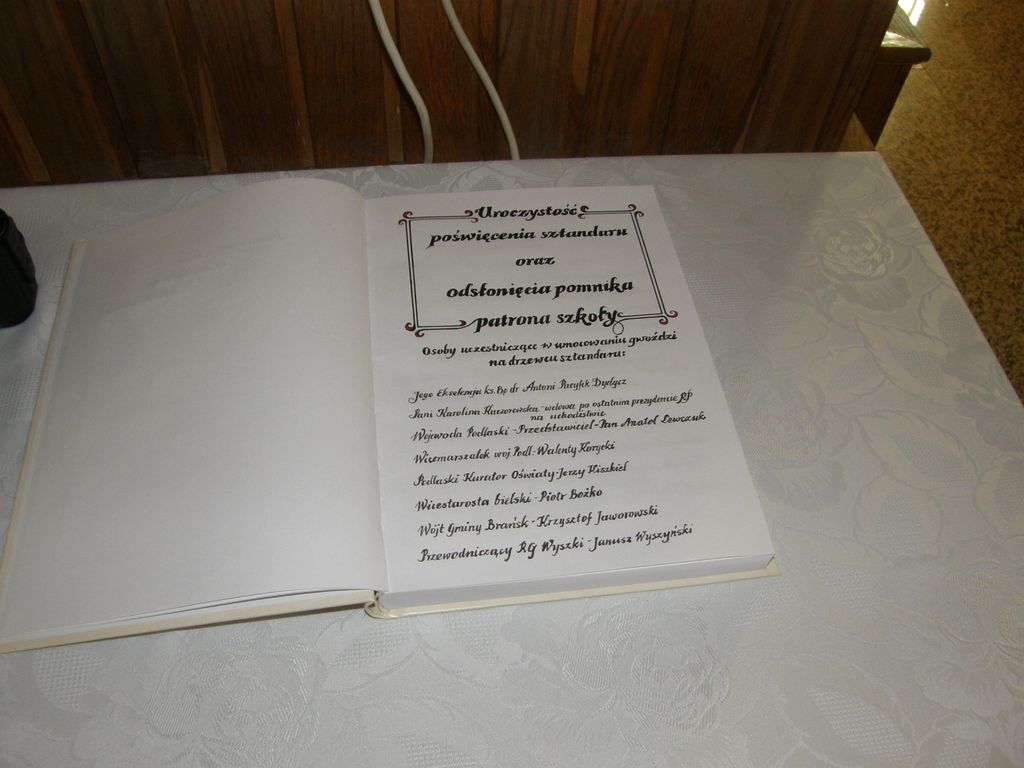 Uroczystość
poświęcenia sztandaru
oraz
odsłonięcia pomnika
patrona szkoły
Osoby uczestniczące w umocowaniu gwoździ
na drzewcu sztandaru:
Jego Ekselencja ks. Bp dr Antoni Pacyfik Dydycz
Pani Karolina Kaczorowska - wdowa po ostatnim prezydencie RP
na uchodźstwie
Wojewoda Podlaski - Przedstawiciel - Pan Anatol Lewczuk
Wicemarszałek woj Podl - Walenty Korycki
Podlaski Kurator Oświaty - Jerzy Kiszkiel
Wicestarosta bielski - Piotr Bożko
Wójt Gminy Brańsk - Krzysztof Jaworowski
Przewodniczący RG Wyszki - Janusz Wyszyński